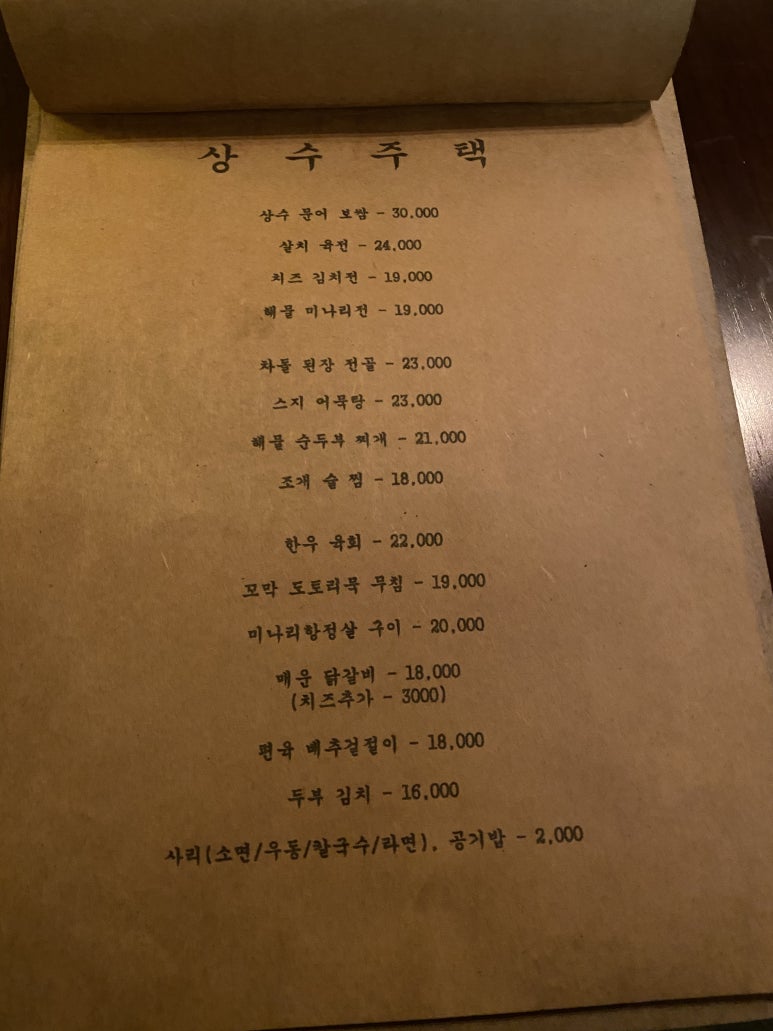 상수주택
상수 문어 보쌈 - 30,000
살치 육전 - 24,000
치즈 김치전 - 19,000
해물 미나리전 - 19,000
차돌 된장 전골 - 23,000
스지 어묵탕 - 23,000
해물 순두부 찌개 - 21,000
조개 술 찜 - 18,000
한우 육회 - 22,000
꼬막 도토리묵 무침 - 19,000
미나리항정살 구이 - 20,000
매운 닭갈비 - 18,000
(치즈추가 - 3000)
편육 배추겉절이 - 18,000
두부 김치 - 16,000
사리(소면/우동/칼국수/라면), 공기밥 - 2,000